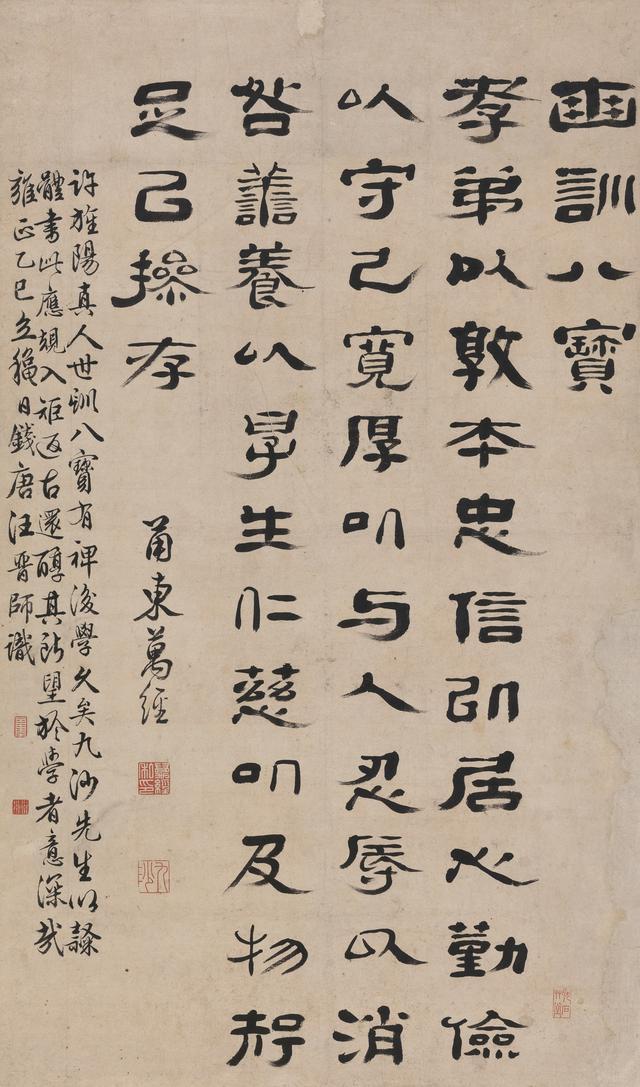 函訓八寶
孝弟以敦本忠信以居心勤儉
以守己寬厚以与人忍辱以消
咎譱養以厚生仁慈以及物
足己操存
甬東萬經
許旌陽真人世訓八寶有裨後學久矣九沙先生以隸
體書此應規入矩返古還醇其所望於學者意深哉
雍正乙巳立穐日錢唐汪晉師識